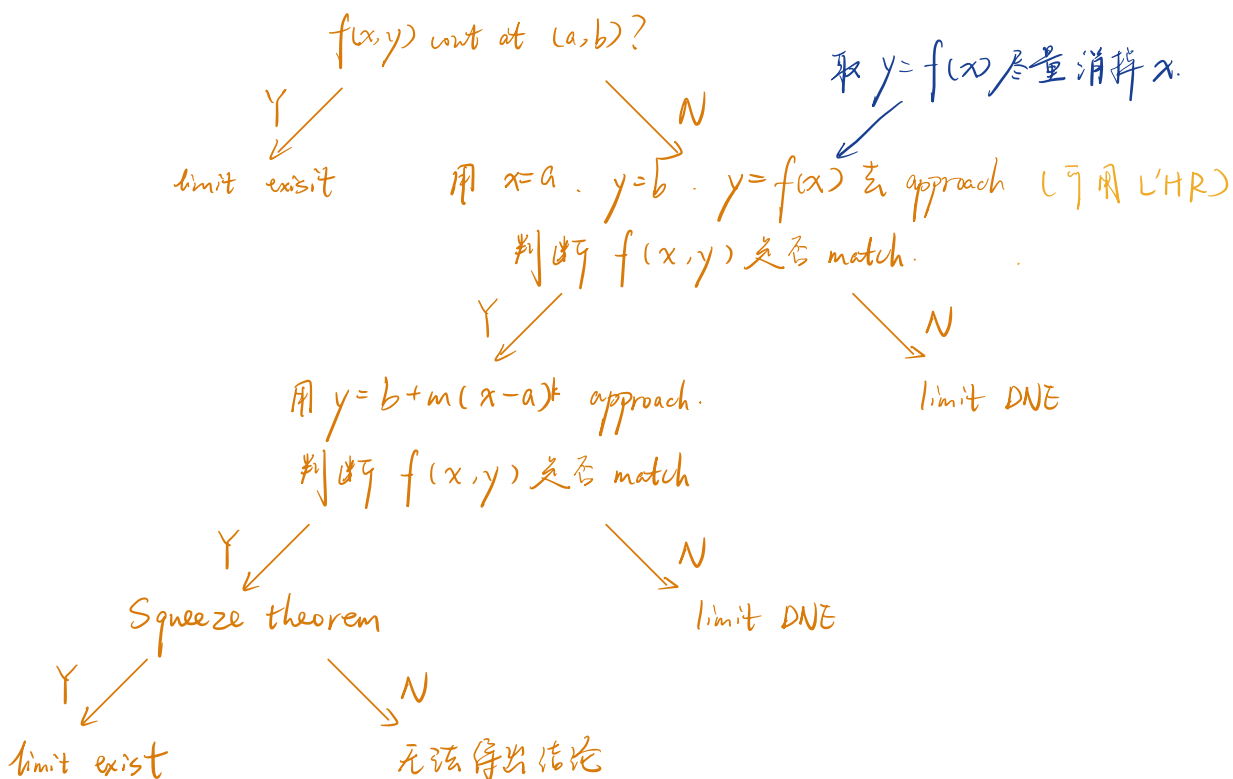 f(x,y) cont at (a,b)?
取 y=f(x) 尽量消掉 x.
Y
N
limit exisit
用 x=a . y=b . y=f(x) 去 approach (可用 L'HR)
判断 f(x,y) 是否 match.
Y
N
用 y=b+m(x-a)^k approach.
limit DNE
判断 f(x,y) 是否 match
Y
N
Squeeze theorem
limit DNE
Y
N
limit exist
无法得出结论